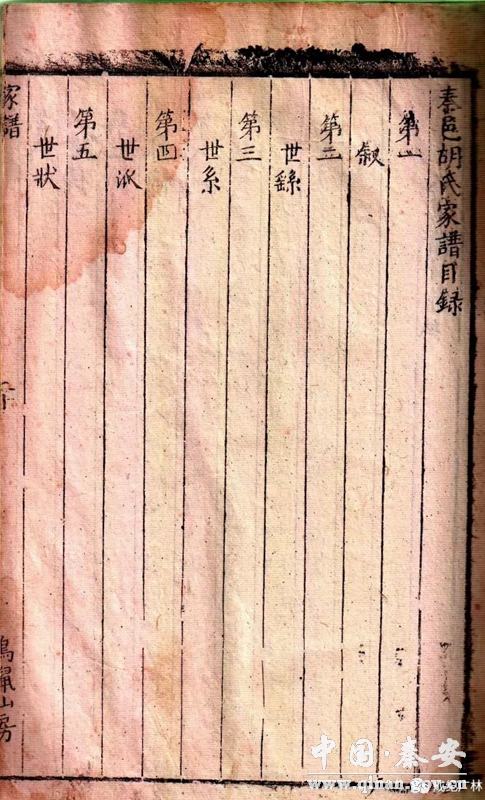 秦邑胡氏家譜目錄
第一
叙
第二
世繇
第三
世系
第四
世派
第五
世狀
家譜
山房
中国·秦安
www.qinan.gov.cn
林